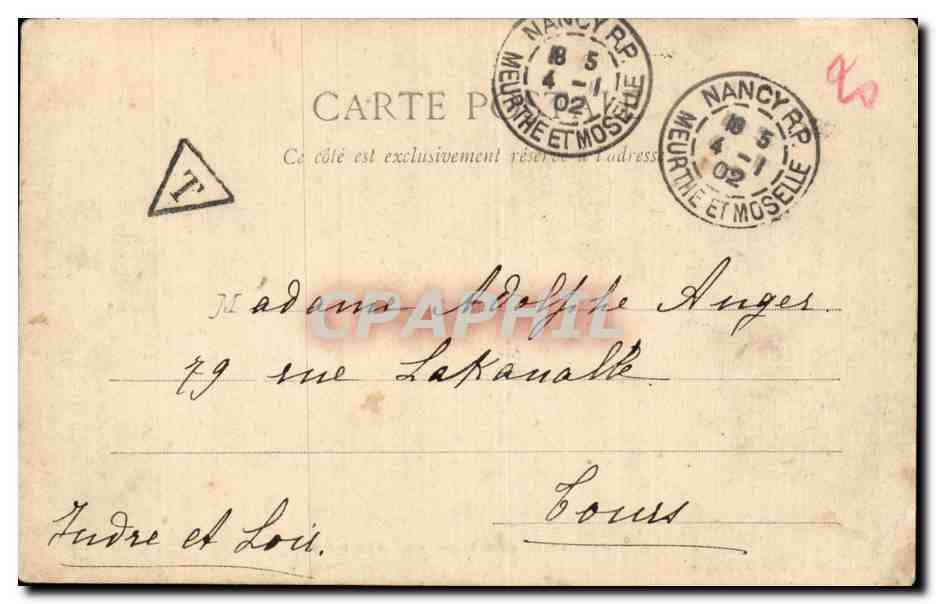 NANCY R.P.
18 5
4 - 1
02
MEURTHE ET MOSELLE
NANCY R.P.
18 5
4 - 1
02
MEURTHE ET MOSELLE
20
CARTE POSTALE
Ce côté est exclusivement réservé à l'adresse
T
Madame Adolphe Anger.
CPAPHIL
79 rue Lakanalle
Tours
Indre et Loir.